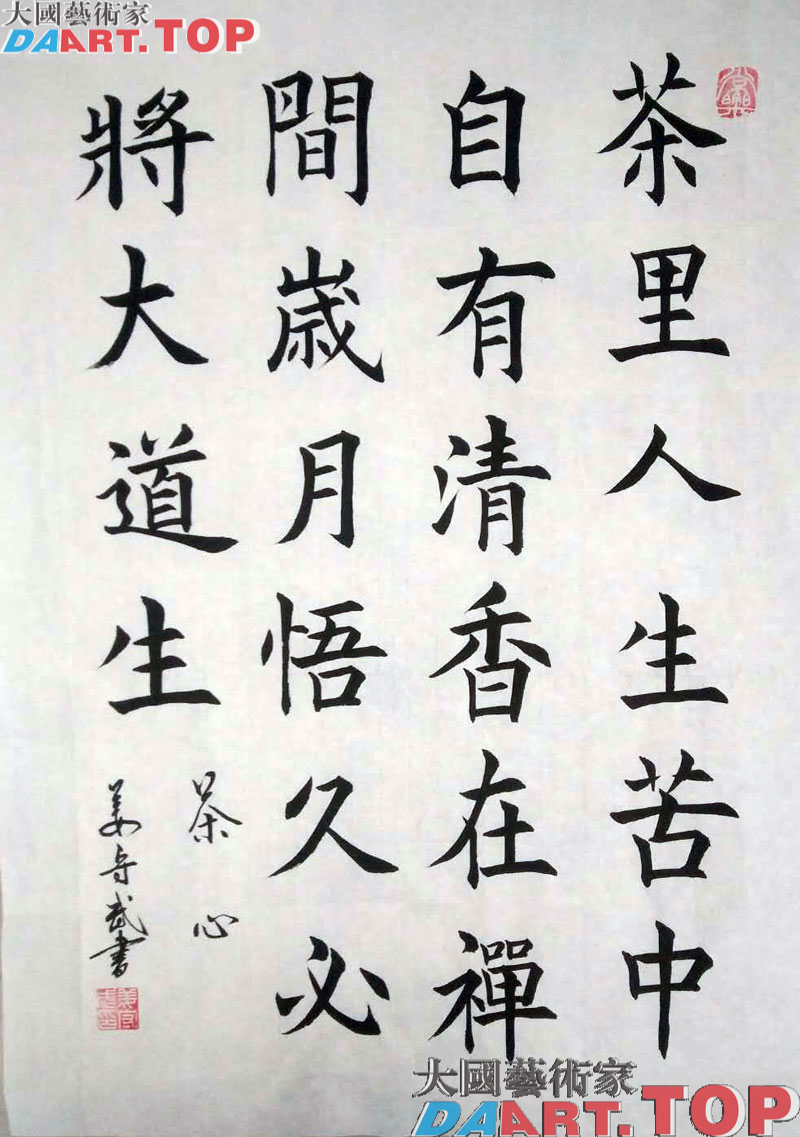 大國藝術家
DAART.TOP
茶里人生苦中
自有清香在禪
間歲月悟久必
將大道生
茶心
姜守武書
大國藝術家
DAART.TOP